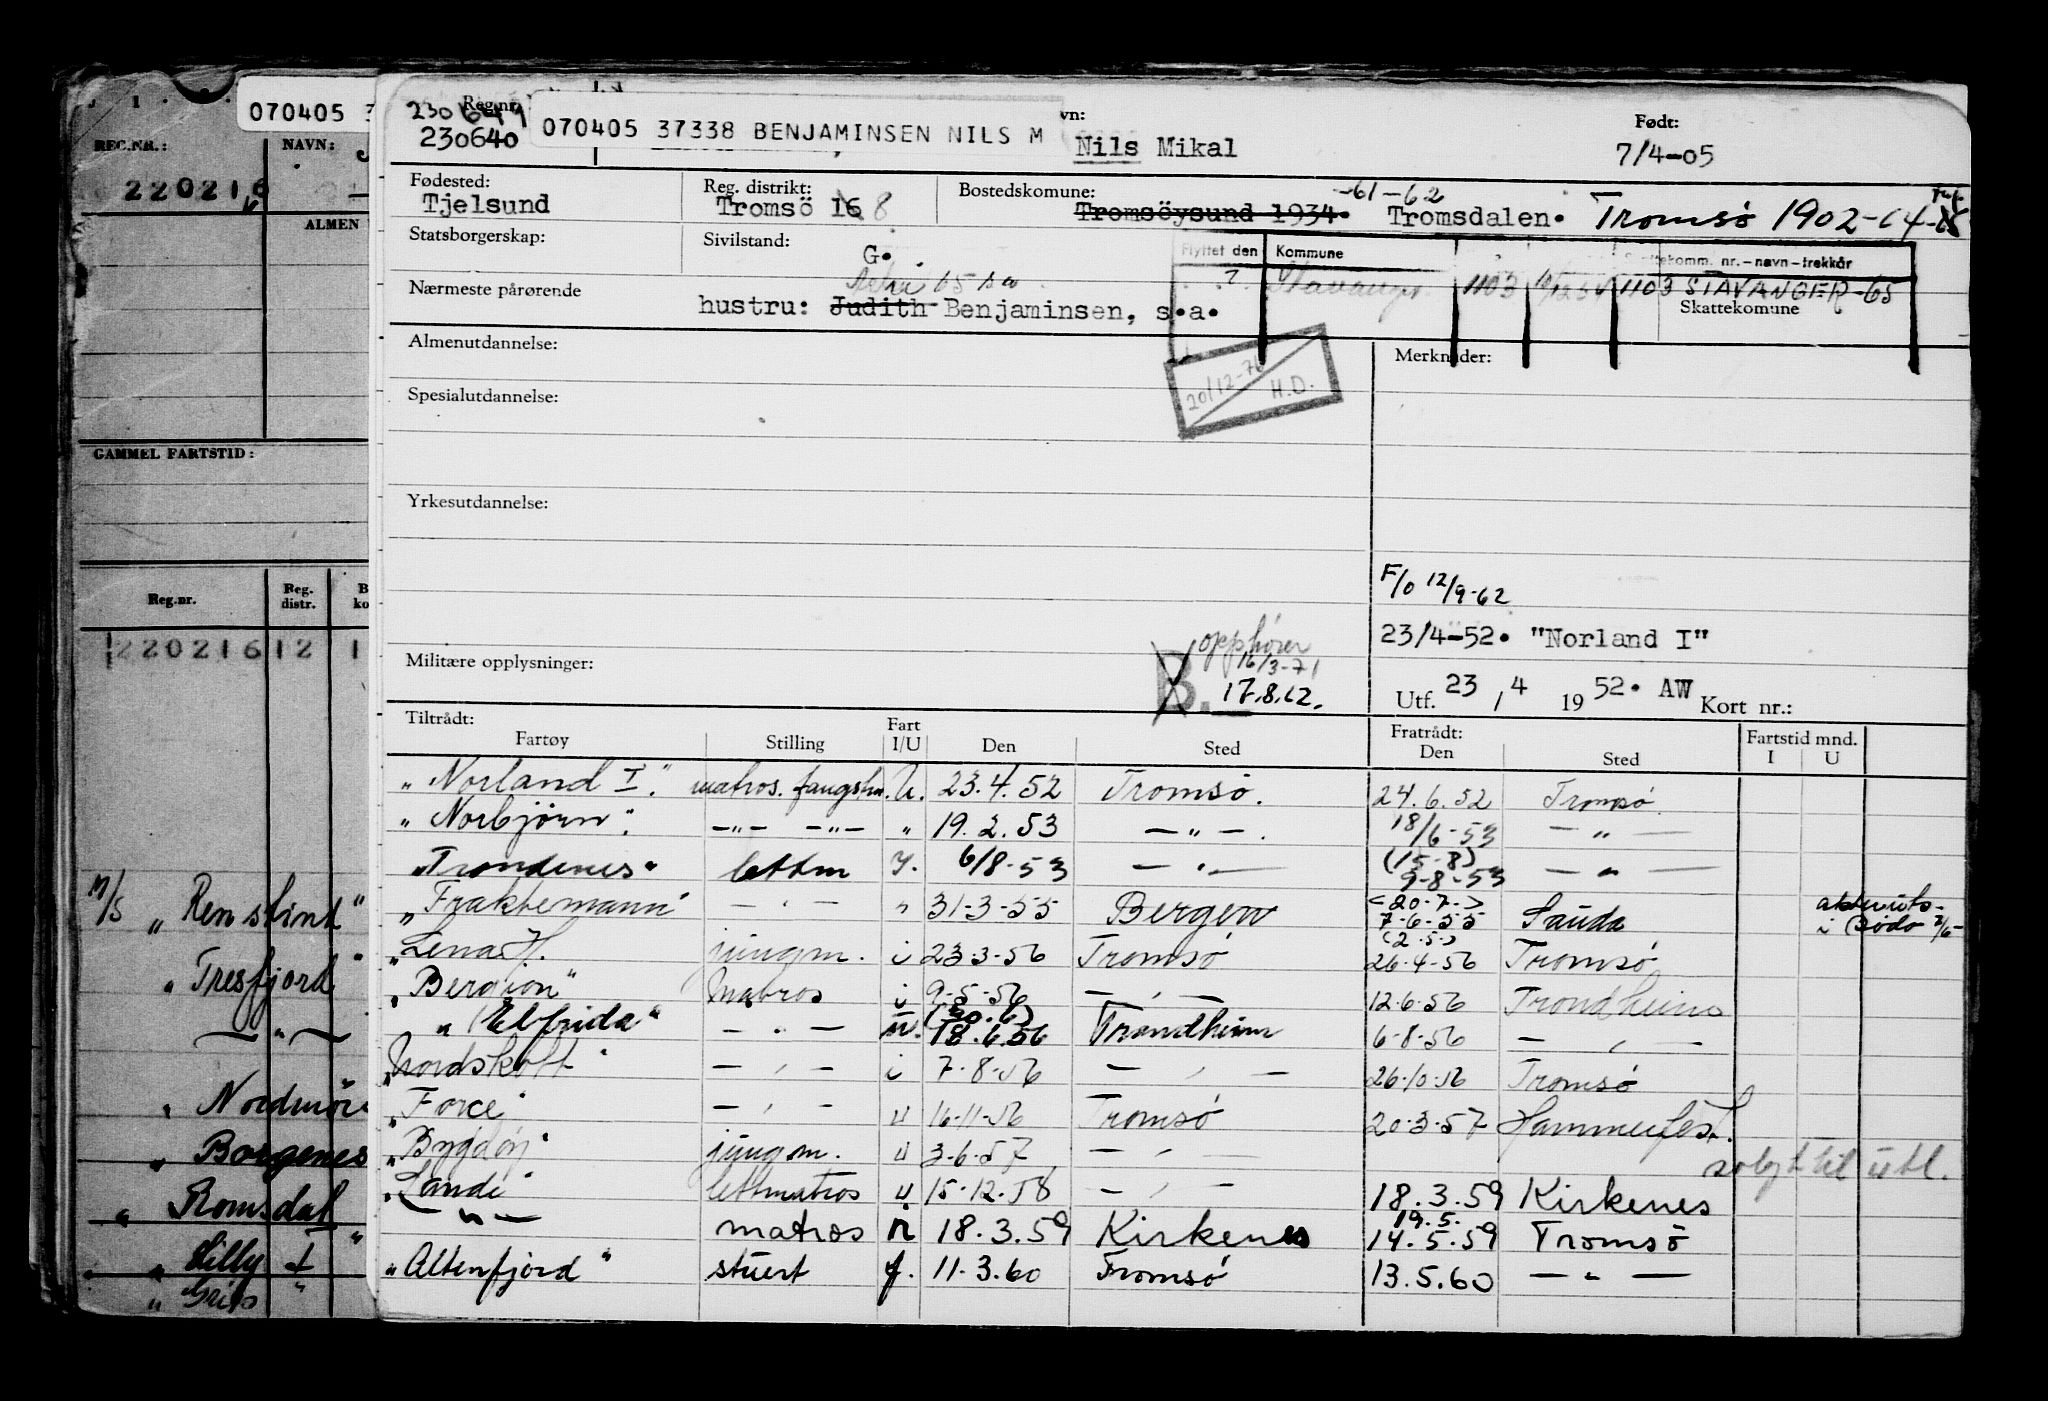 070405 3
REG.NR.:
NAVN:
220216
ALMEN
GAMMEL FARTSTID:
Reg.nr.
Reg. distr.
B ko
220216 12 1
M/S „Renstind"
„Tresfjord"
— " —
„Nordmöre
„Borgenes
„Romsdal
„Lilly
„Grip
Reg.nr.
230640
070405 37338 BENJAMINSEN NILS M
vn:
Nils Mikal
Født:
7/4-05
Fødested:
Tjelsund
Reg. distrikt:
Tromsö 16 8
Bostedskomune:
-61-62
Tromsöysund 1934. Tromsdalen. Tromsø 1902-64-
Statsborgerskap:
Sivilstand:
G.
Flyttet den
Kommune
ttekomm. nr.-navn-trekkår
? Stavanger 1103
1103 STAVANGER-65
Skattekomune
Nærmeste pårørende
65
hustru: Judith Benjaminsen, s.a.
Almenutdannelse:
Merknader:
20/12-76 H.D.
Spesialutdannelse:
Yrkesutdannelse:
F/o 12/9-62
23/4-52. "Norland I"
Militære opplysninger:
opphører
16/3-71
B.
17.8.62.
Utf. 23 / 4 19 52. AW Kort nr.:
Tiltrådt:
Fartøy
Stilling
Fart I/U
Den
Sted
Fratrådt:
Den
Sted
Fartstid mnd.
I
U
„Norland I." matros. fangstm. U. 23.4.52 Tromsö. 24.6.52 Tromsö
„Norbjörn". —"— —"— " 19.2.53 — " —. 18/6-53 — " —
„Trondenes" lettm 6/8-53 — " — (15-8) 9-8-53 — " —
„Fraktemann" — " — " 31-3-55 Bergen (20-7-) 7-6-55 Sauda i Bodö
„Lena H. jungm. i 23-3-56 Tromsö (2-5-) 26-4-56 Tromsö
„Bergion" Matros i 9-5-56 — " — 12-6-56 Trondheim
„Elfrida" — " — (20.6) 18.6.56 Trondheim 6-8-56 — " —
„Nordskott" — " — i 7-8-56 — " — 26-10-56 Tromsö
„Force" — " — u 16-11-56 Tromsö 20-3-57 Hammerfest.
„Bygdöy" jungm. u 3-6-57 — " — solgt til utl.
„Landi" lettmatros u 15-12-58 — " — 18.3.59 Kirkenes
— " — matros 18.3.59 Kirkenes 19.5. 14.5.59 Tromsö
„Altenfjord" stuert f. 11.3.60 Tromsö 13.5.60 — " —